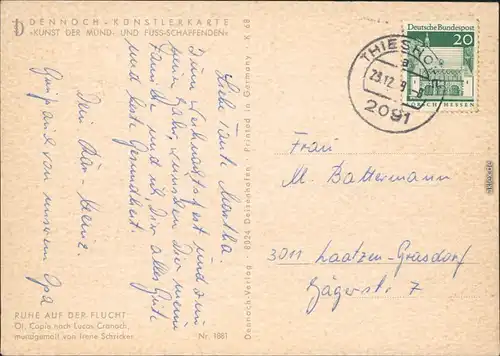 DENNOCH - KÜNSTLERKARTE
»KUNST DER MUND- UND FUSS-SCHAFFENDEN«
Liebe Tante Martha.
Zum Weihnachtsfest und zum
neuen Jahr, wünschen Dir meine
Familie und ich, Dir alles Gute
und beste Gesundheit.
Dein
Grüße auch von unserem Opa
RUHE AUF DER FLUCHT
Öl, Copie nach Lucas Cranach,
mundgemalt von Irene Schricker
Nr. 1681
Dennoch-Verlag · 8024 Deisenhofen Printed in Germany K 68
Deutsche Bundespost
20
LORSCH/HESSEN
THIESHO
a
23.12.
2091
Frau
M. Battermann
3011 Laatzen-Grasdorf
Jägerstr. 7